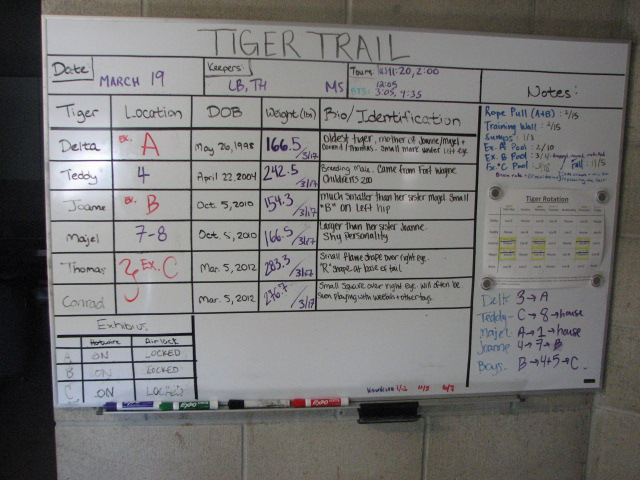 TIGER TRAIL
Date MARCH 19
Keepers: LB, TH MS
Tours: 11:20, 2:00
12:05
3:05, 4:35
Notes:
Tiger Location DOB Weight (lbs) Bio/Identification
Delta Ex. A May 26, 1998 166.5 3/17 Oldest tiger, mother of Joanne/Majel + Conrad/Thomas. Small mark under left eye
Teddy 4 April 22, 2004 242.5 3/17 Breeding Male. Came from Fort Wayne Childrens Zoo
Joanne Ex. B Oct. 5, 2010 154.3 3/17 Much smaller than her sister Majel. Small "B" on left hip
Majel 7-8 Oct. 5, 2010 166.5 3/17 Larger than her sister Joanne. Shy personality
Thomas Ex. C Mar. 5, 2012 283.3 3/17 Small flame shape over right eye. "R" shape at base of tail
Conrad Mar. 5, 2012 3/17 Small square over right eye. Will often be seen playing with weebles + other toys.
Rope Pull (A+B): 2/15
Training Wall: 2/15
Sumps: 1/8
Ex. A Pool: 2/10
Ex. B Pool: 3/4
Ex. C Pool:
Fall: 11/5
Tiger Rotation
Delta 3→A
Teddy- C→8→house
Majel A→1→house
Joanne 4→7→B
Boys. B→4+5→C
Exhibits
Hotwire Airlock
A ON LOCKED
B ON LOCKED
C ON LOCKED
EXPO
EXPO